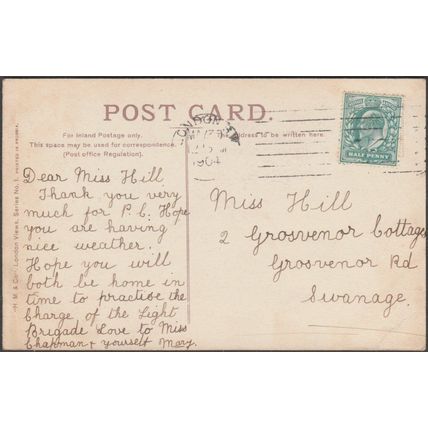 POST CARD.
For Inland Postage only.
This space may be used for correspondence.
(Post office Regulation).
address to be written here.
LONDON
1904
HALF PENNY
Dear Miss Hill
Thank you very
much for P.C. Hope
you are having
nice weather.
Hope you will
both be home in
time to practise the
Charge of the Light
Brigade Love to Miss
Chapman & yourself Mary.
Miss Hill
2 Grosvenor Cottages
Grosvenor Rd
Swanage.
"H. M. & Co." London Views, Series No. 1. PRINTED IN